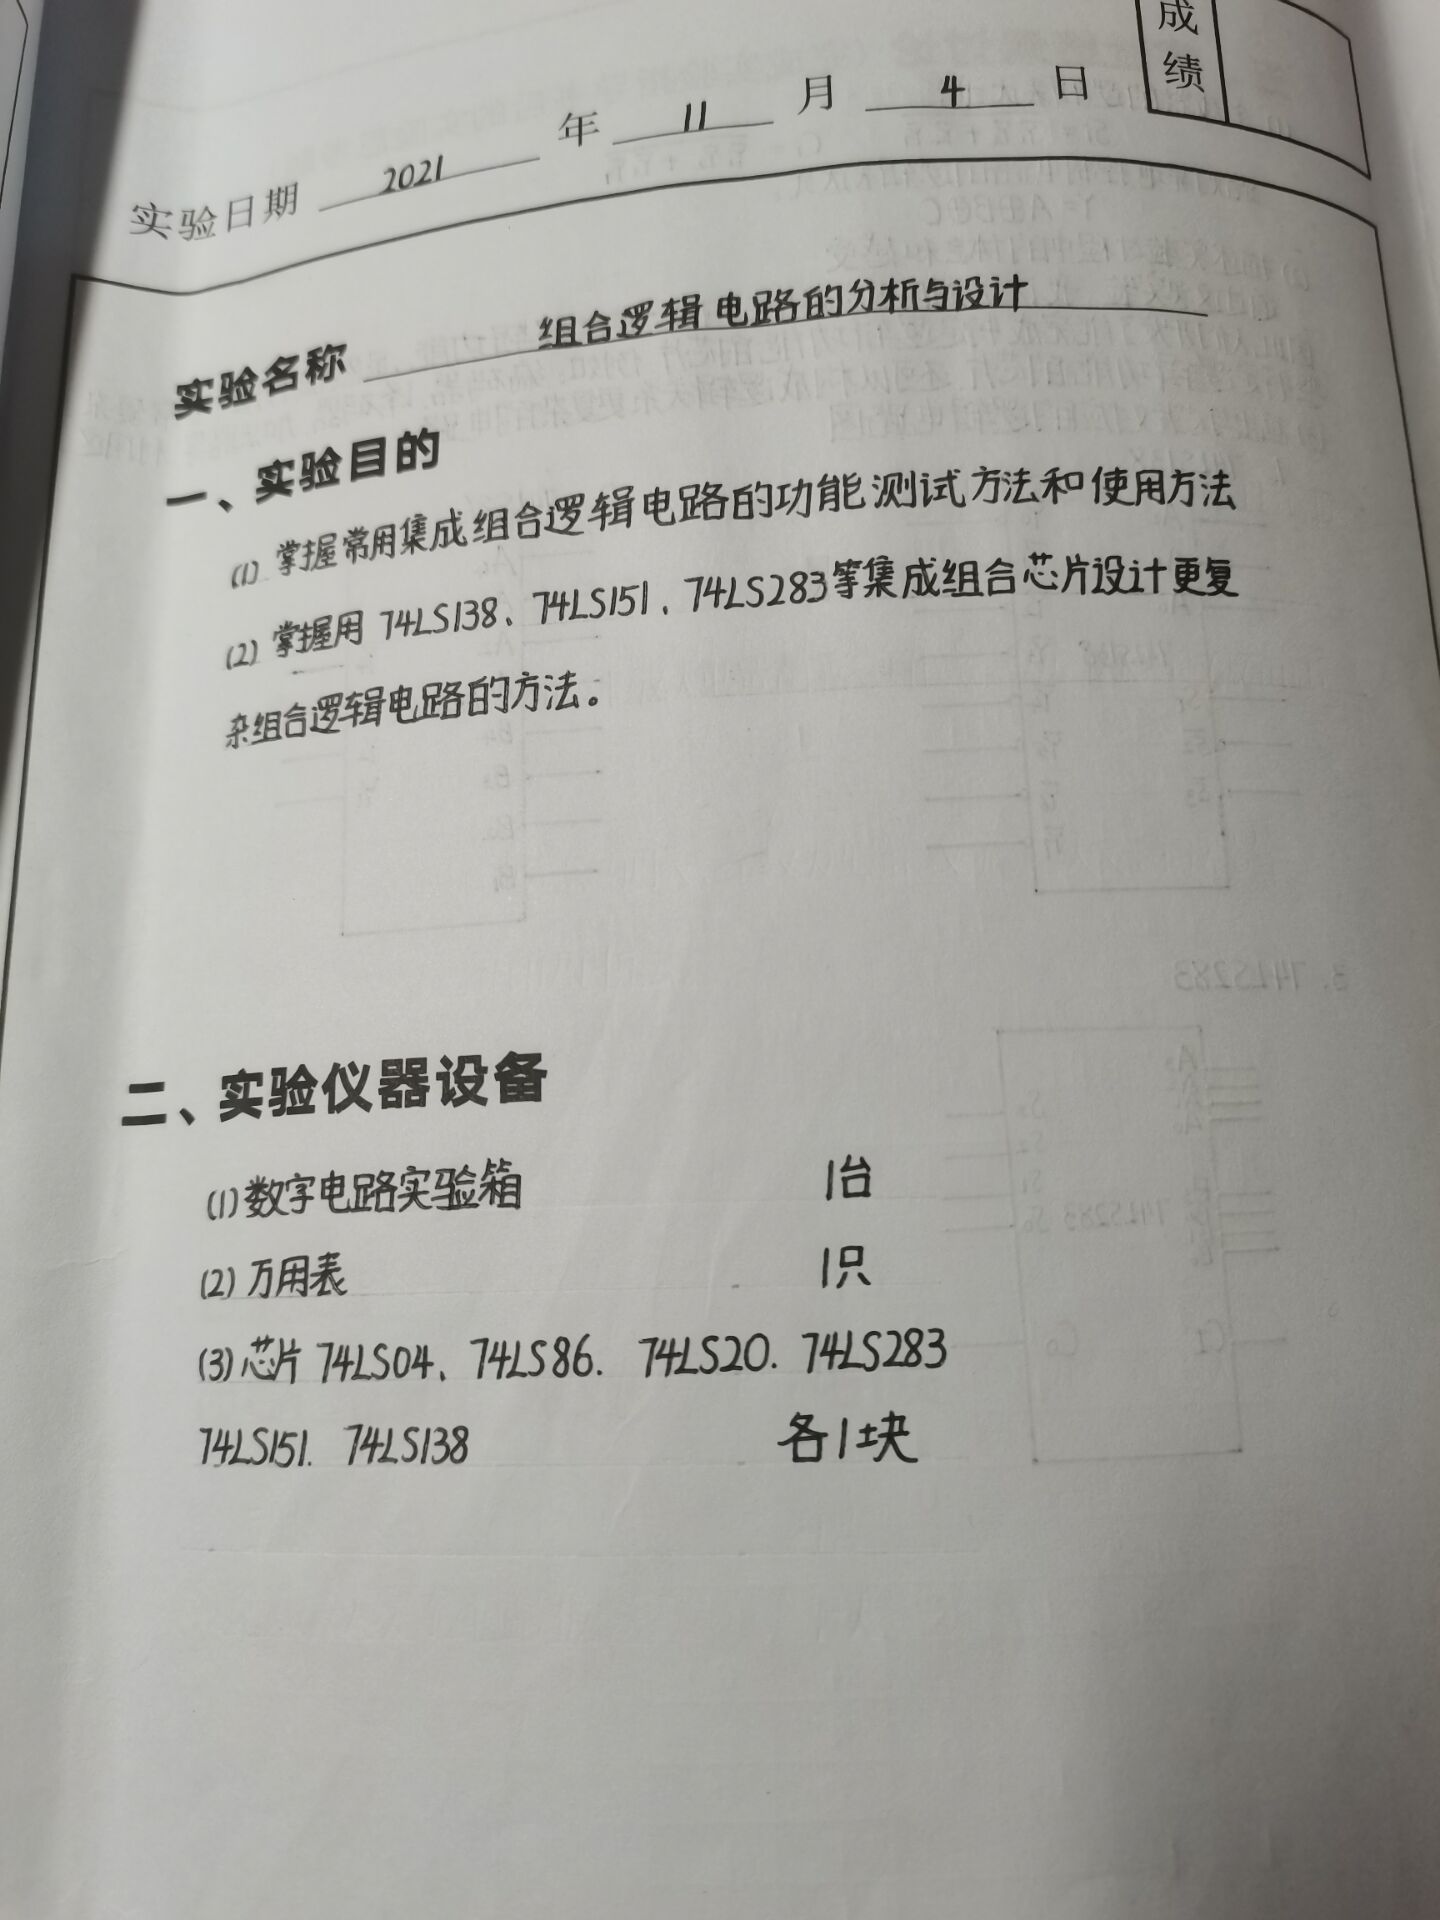 成绩
实验日期 2021 年 11 月 4 日
实验名称 组合逻辑电路的分析与设计
一、实验目的
(1) 掌握常用集成组合逻辑电路的功能测试方法和使用方法
(2) 掌握用 74LS138、74LS151、74LS283等集成组合芯片设计更复
杂组合逻辑电路的方法。
二、实验仪器设备
(1) 数字电路实验箱 1台
(2) 万用表 1只
(3) 芯片 74LS04、74LS86. 74LS20. 74LS283
74LS151. 74LS138 各1块